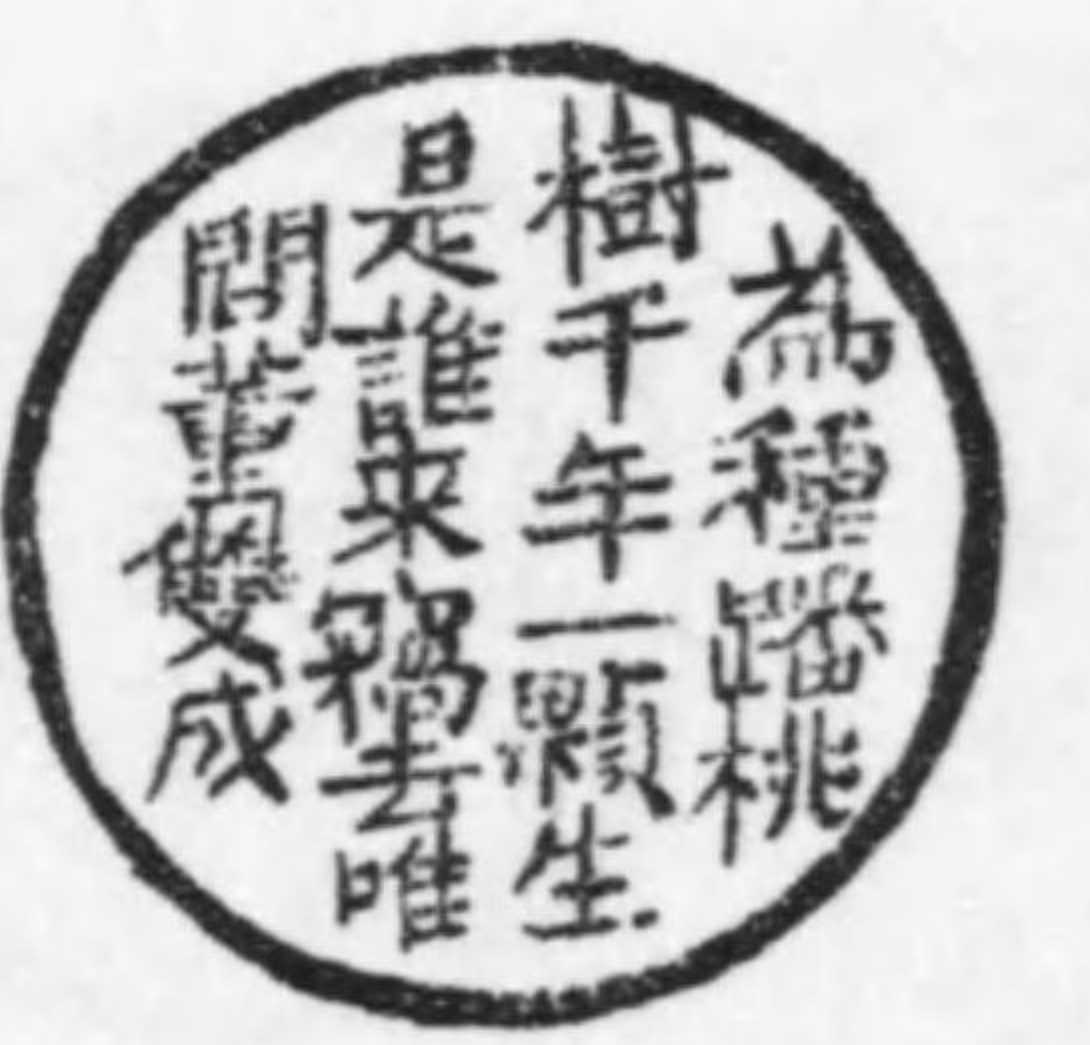 為種蹯桃
樹千年一顆生
是誰來竊去唯
問董雙成